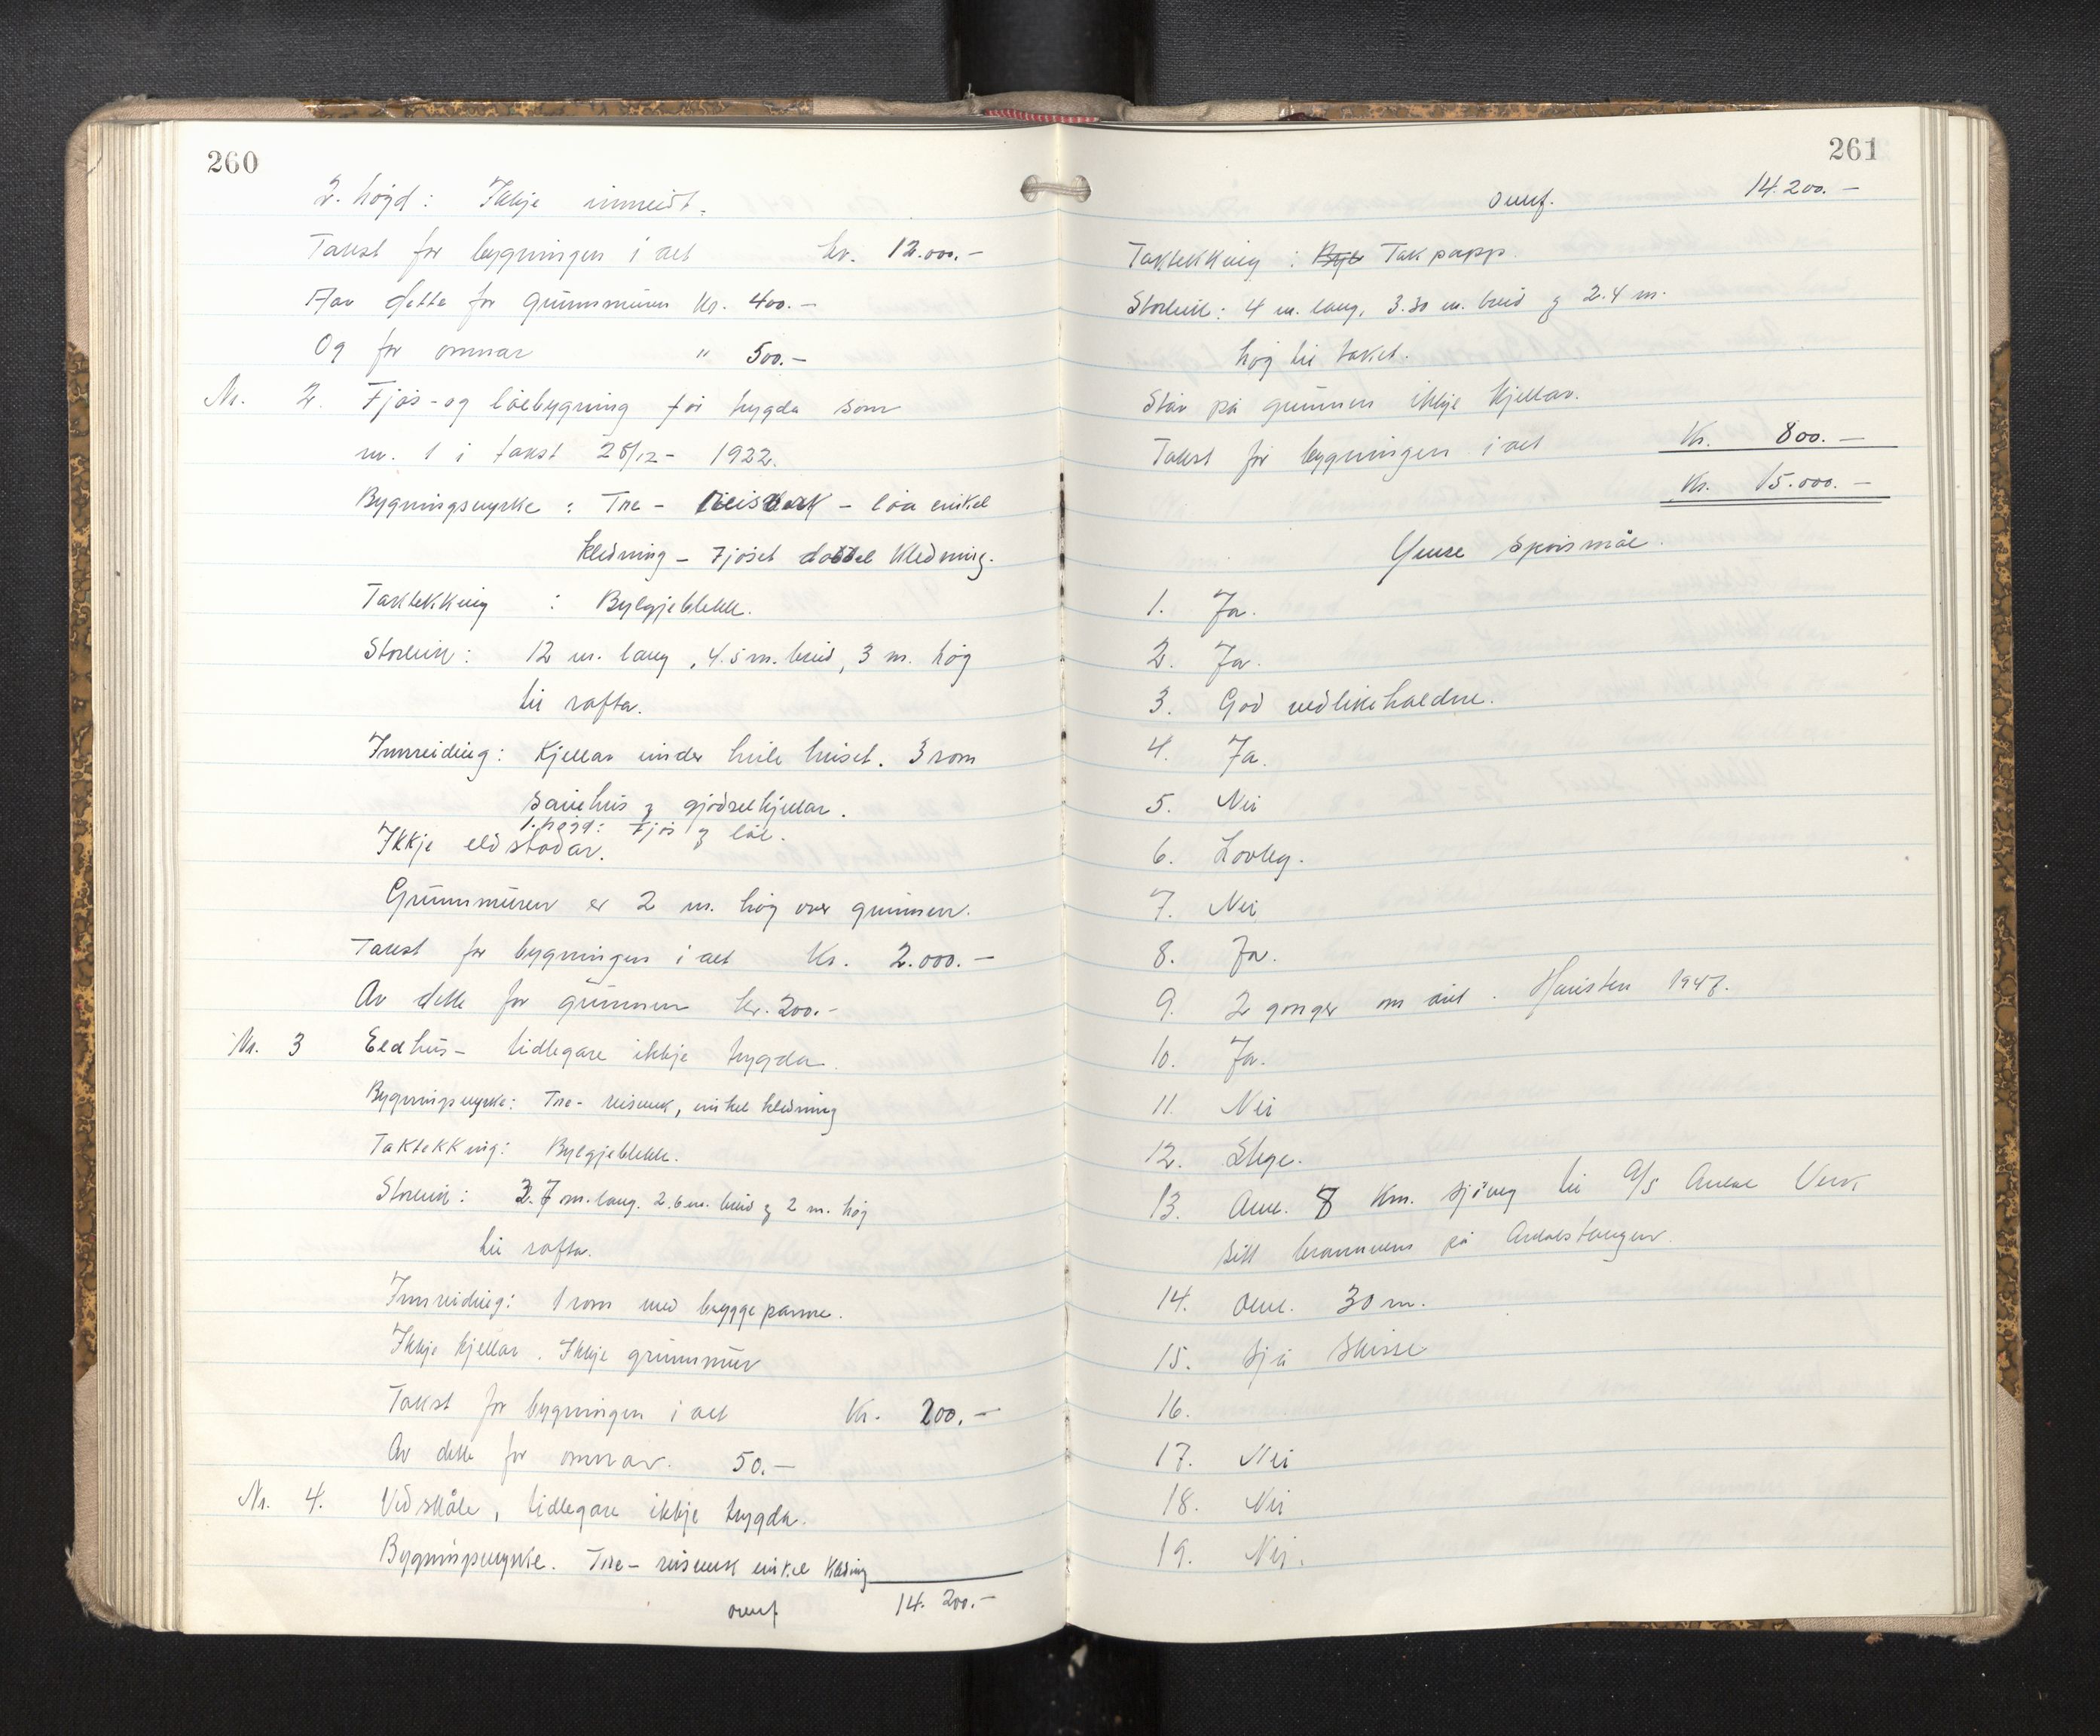 260
2. høgd: Ikkje innreidt.
Takst for bygningen i alt kr. 12.000.-
Av dette for grunnmuren kr. 400.-
Og for omnar " 500.-
Nr. 2. Fjøs- og løebygning før trygda som
nr. 1 i takst 28/12- 1922.
Bygningsmyrke : Tre - Reisverk - løa enkel
kledning - Fjøset dobbel kledning.
Taktekking : Bylgjeblekk.
Storleik : 12 m. lang, 4.5 m. breid, 3 m. høg
til rafta.
Innreiding : Kjellar under heile huset. 3 rom
sauehus og gjødselkjellar.
1. høgd: Fjøs og løe.
Ikkje eldstadar.
Grunnmuren er 2 m. høg over grunnen.
Takst for bygningen i alt Kr. 2.000.-
Av dette for grunnen kr. 200.-
Nr. 3 Eldhus - tidlegare ikkje trygda.
Bygningsmyrke: Tre- reisverk, enkel kledning
Taktekking: Bylgjeblekk.
Storleik : 3.7 m. lang. 2.6 m. breid og 2 m. høg
til rafta.
Innreiding: 1 rom med bryggepanne.
Ikkje kjellar. Ikkje grunnmur
Takst for bygningen i alt Kr. 200.-
Av dette for omnar. 50.-
Nr. 4. Vedskåle, tidlegare ikkje trygda.
Bygningsmyrke. Tre- reisverk enkel kledning
overf 14.200.-
261
overf. 14.200.-
Taktekking : Byl Takpapp.
Storleik : 4 m. lang, 3.30 m. breid og 2.4 m.
høg til taket.
Står på grunnen ikkje kjellar.
Takst for bygningen i alt Kr. 800.-
Kr. 15.000.-
Ymse spørsmål.
1. Ja.
2. Ja.
3. God vedlikehaldne.
4. Ja.
5. Nei
6. Lovleg.
7. Nei
8. Ja.
9. 2 gonger om året. Hausten 1947.
10. Ja.
11. Nei
12. Stige.
13. Oml. 8 km. sjøveg til A/S Årdal Verk
sitt brannvern på Årdalstangen.
14. Oml. 30 m.
15. Sjå Skisse
16.
17. Nei
18. Nei
19. Nei.